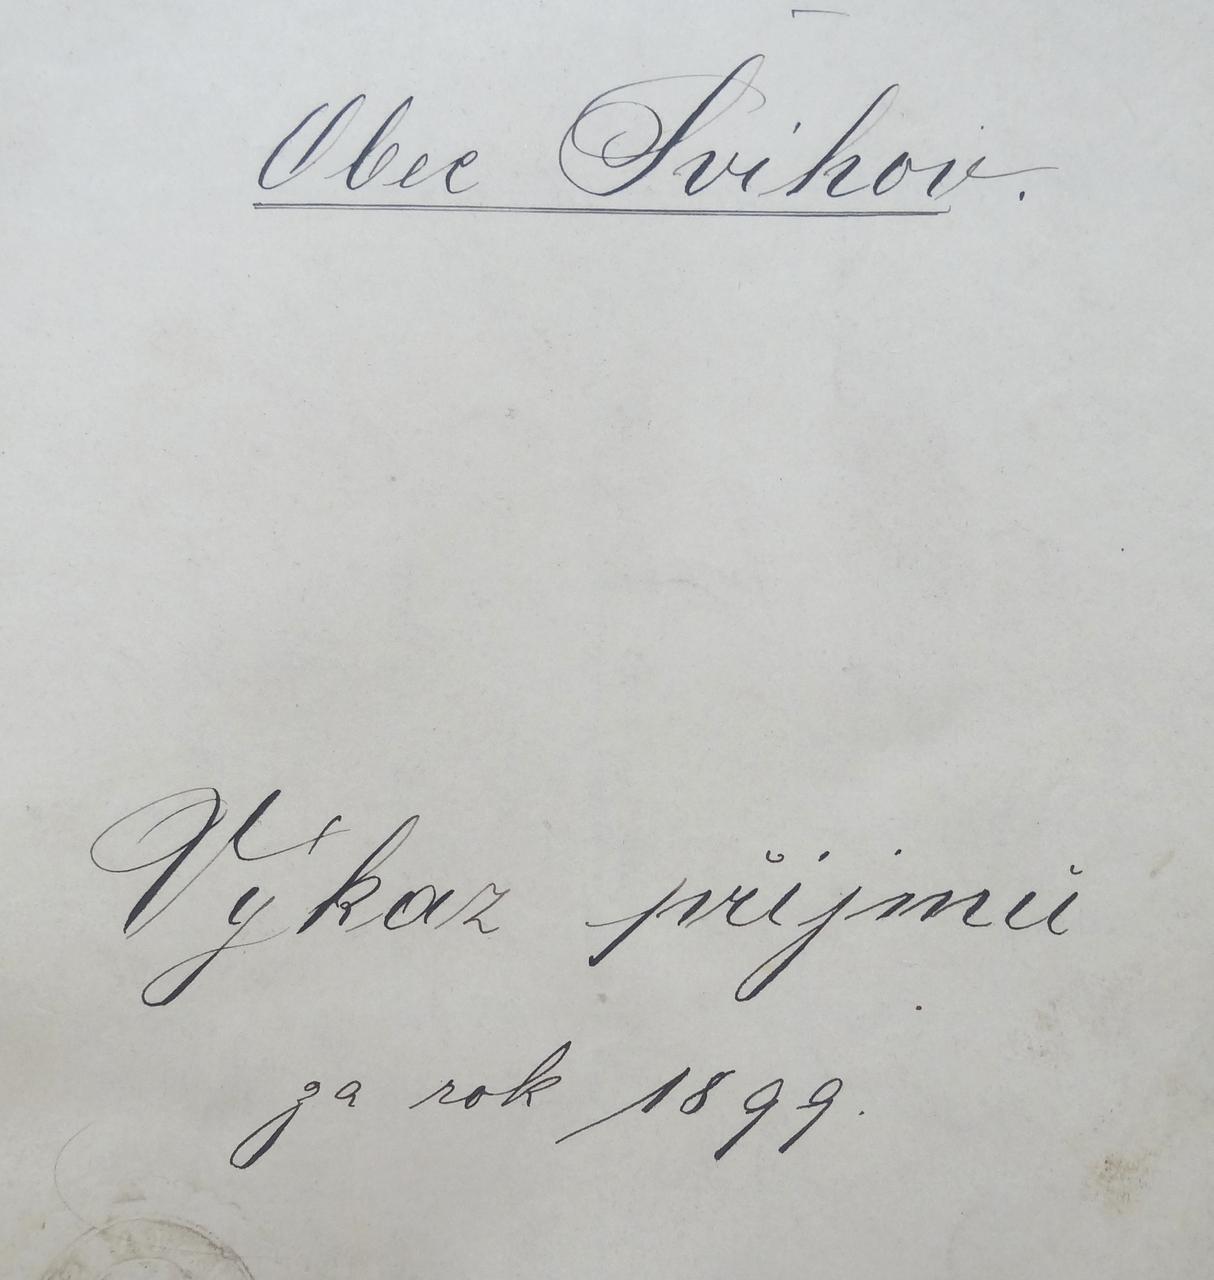 Obec Švihov.
Výkaz příjmů
za rok 1899.